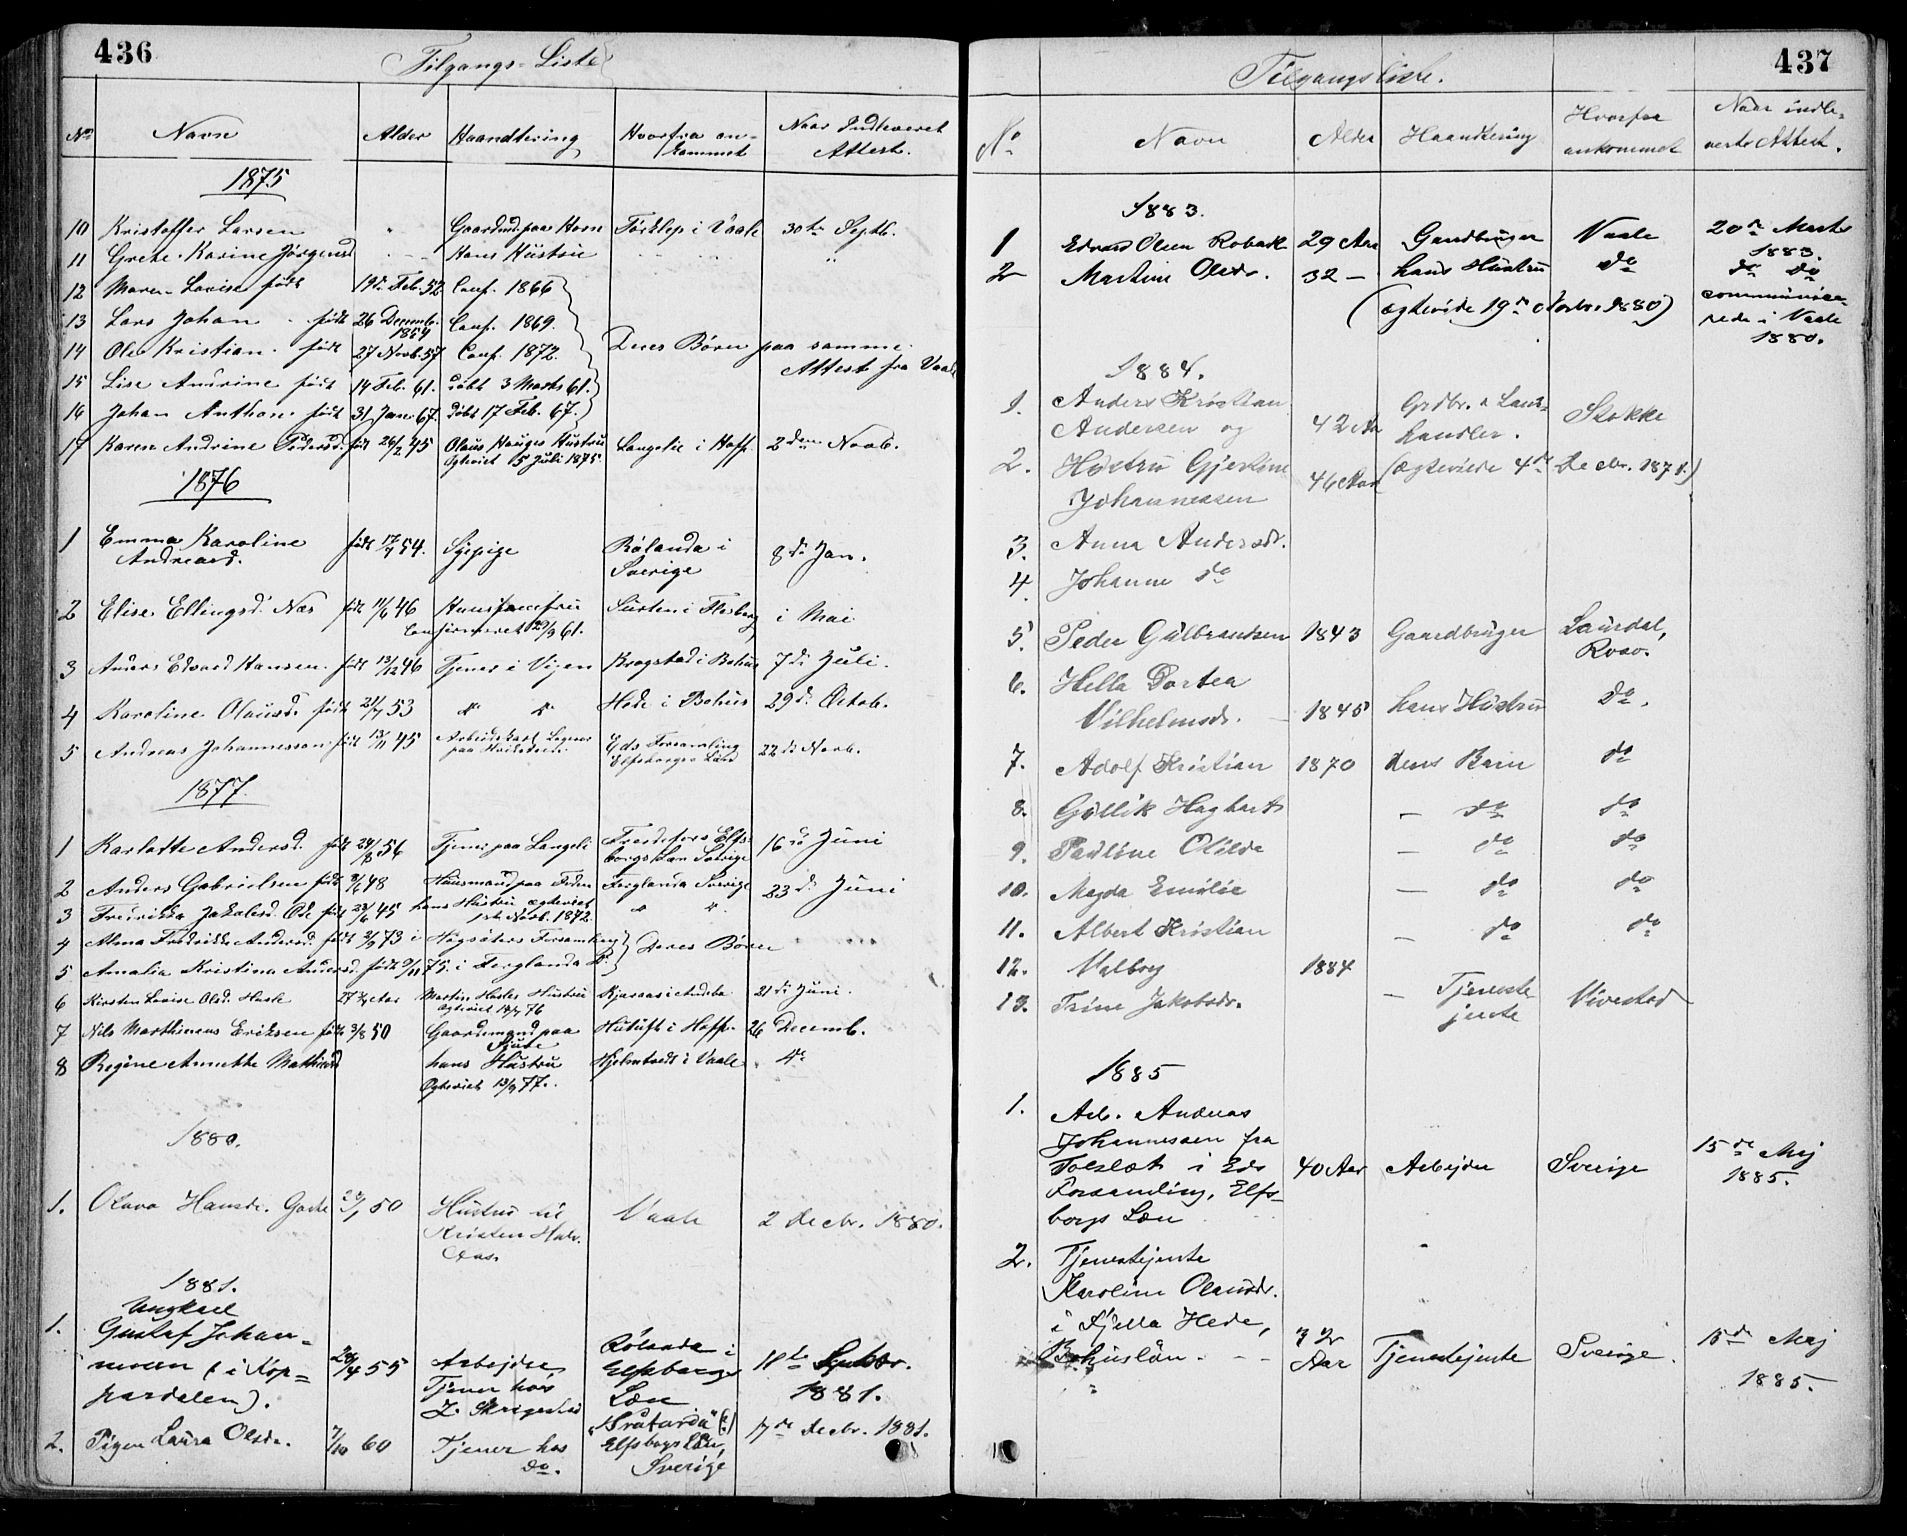 436
Tilgangs-Liste
No Navn Alder Haandtering Hvorfra ankommet Naar Indleveret Attest.
1875
10 Kristoffer Larsen " Gaardmd. paa Horn i Vaale 30te Septb.
11 Grete Karine Jørgensd. " Hans Hustru " "
12 Maren Lovise født 19de Feb. 52 Conf. 1866
13 Lars Johan født 26 Decemb. 1854 Conf. 1869.
14 Ole Kristian født 27 Novb. 57 Conf. 1872. Deres Børn paa samme Attest fra Vaale
15 Lise Andrine født 14 Feb. 61. døbt 3 Marts 61.
16 Johan Anthon født 31 Jan. 67. Døbt 17 Feb. 67.
17 Karen Andrine Pedersd. født 26/2 45 Olaus Hauges Hustru Langelie i Hoff 2den Novb.
Egteviet 15 Juli 1875.
1876
1 Emma Karoline Andreasd. født 17/7 54. Sypige Rölanda i Sverige 8de Jan.
2 Elise Ellingsd. Næs født 11/6 46 i Flesberg i Mai
Confirmeret 29/9 61.
3 Anders Edvard Hansen født 13/12 46 Tjener i Vigen Krogstad i Bohus 7de Juli.
4 Karoline Olausd. født 21/7 53 do do Hede i Bohus 29de Octob.
5 Andreas Johannesson født 13/11 45 Eds Forsamling Elfsborgs Län 22de Novb.
1877
1 Karlotte Andersd. født 24/8 56 Tjener paa Langeli Elfsborgs Län Sverige 16de Juni
2 Anders Gabrielsen født 48 Husmand paa Feden Ferglanda Sverige 23de Juni
3 Fredrikka Jakobsd. Ode født 45 hans Hustru egteviet 1ste Novb. 1872. do do
4 Alma Fredrikke Andersd. født 73 i Högsäters Forsamling Deres Børn
5 Amalia Kristina Andersd. født 75 i Ferglanda do
6 Kirsten Lovise Olsd. Hasle 27 3/4 Aar Martin Hasles Hustru Egteviet 76 21de Juni.
7 Nils Marthinus Eriksen født 3/8 50 Gaardmand paa i Hoff. 26 Decemb.
8 Regine Annette Mathisd. hans Hustru Hjelmtvedt i Vaale do
Egteviet 13/9 77.
1880.
1. Olava Hansdr. 50 Hustru til Kristen Halv. Aas. Vaale 2 Decbr. 1880.
1881.
1. Ungkarl Gustaf Johannesen (i Kopperdalen). 28/4 55 Arbejder Tjener hos Z. Skrigestad Rölanda i Elfsborgs Län 18de Septbr. 1881.
2. Pigen Laura Olsdr. 7/10 60 Tjener hos do. (?) Elfsborgs Län, Sverige 17de Decbr. 1881.
437
Tilgangsliste.
No Navn Alder Haandtering Hvorfra ankommet Naar indleverte Attest.
1883.
1 Edvard Olsen 29 Aar Gaardbruger Vaale 20de Marts 1883.
2 Martine Olsdr. 32 – hans Hustru do do do
(ægteviede 19de Novbr. 1880) communicerede i Vaale 1880.
1884.
1. Anders Kristian Andersen og 42 Aar Grdbr. & Landhandler. Stokke
2. Hustru Gjertine Johannessen 46 Aar (ægteviede 4de Decbr. 1871.)
3. Anna Andersdr.
4. Johanne do
5. Peder Gulbrandsen 1843 Gaardbruger Laurdal,
6. Hella Dortea Vilhelmsdr. 1845 hans Hustru do.
7. Adolf Kristian 1870 deres Barn do
8. Gullik Hagbart – do do
9. Pauline Olilde – do do
10. Magda Emilie – do do
11. Albert Kristian – do do
12. Valborg 1884
13. Trine Jakobsdr. – Tjenestejente Vivestad
1885
1. Arb. Andreas Johannessen fra i Eds Forsamling, Elfsborgs Län 40 Aar Arbejder Sverige 15de Maj 1885.
2. Tjenestejente Karoline Olausdr. i Hede, Bohuslän. – – 32 Aar Tjenestejente Sverige. 15de Maj 1885.